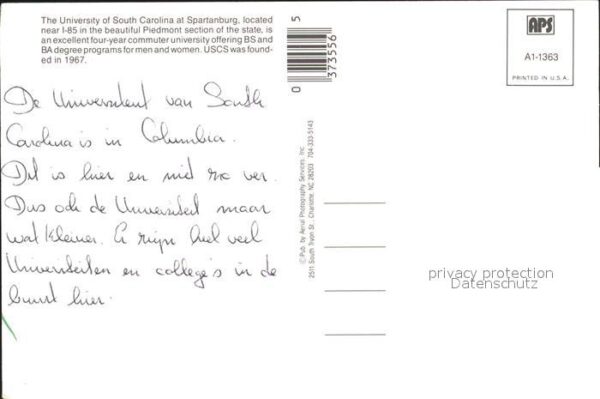 The University of South Carolina at Spartanburg, located
near I-85 in the beautiful Piedmont section of the state, is
an excellent four-year commuter university offering BS and
BA degree programs for men and women. USCS was found-
ed in 1967.
5
0 373556
APS
A1-1363
PRINTED IN U.S.A.
De Universiteit van South
Carolina is in Columbia.
Dit is hier en niet zo ver.
Dus ook de Universiteit maar
wat kleiner. Er zijn heel veel
Universiteiten en college's in de
buurt hier.
© Pub. by Aerial Photography Services, Inc.
2511 South Tryon St., Charlotte, NC 28203 704-333-5143
privacy protection
Datenschutz